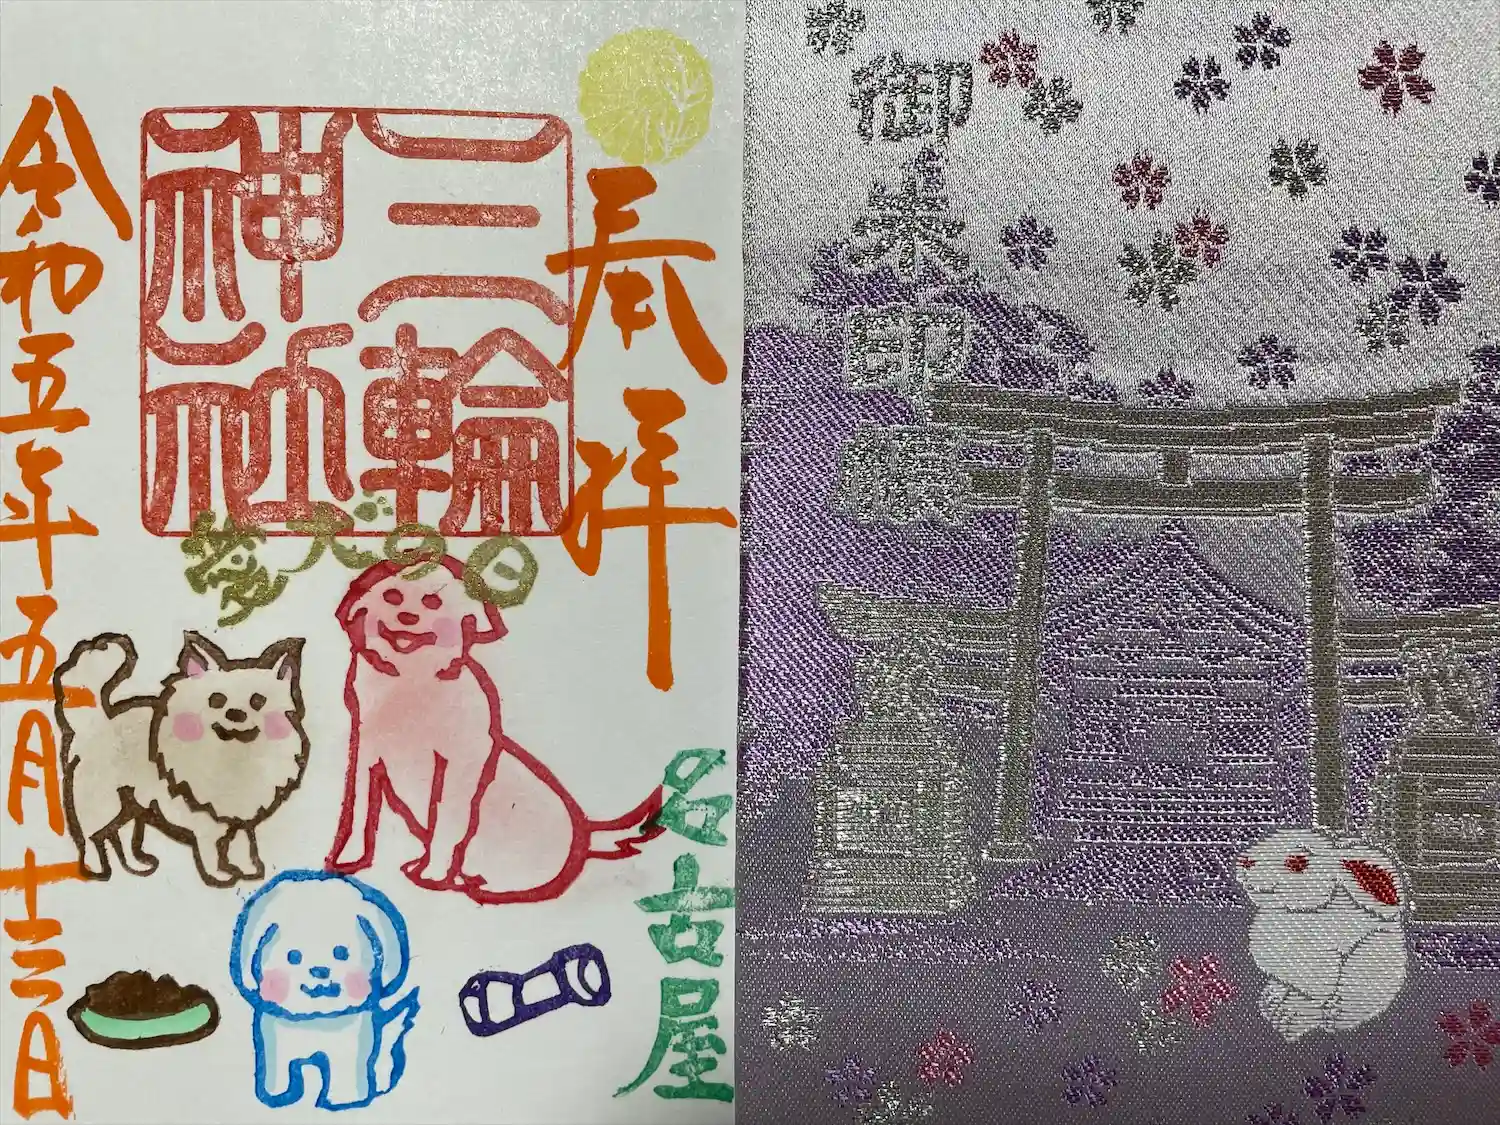 奉拝
三輪
神社
愛犬の日
名古屋
令和五年五月十三日
御朱印帳